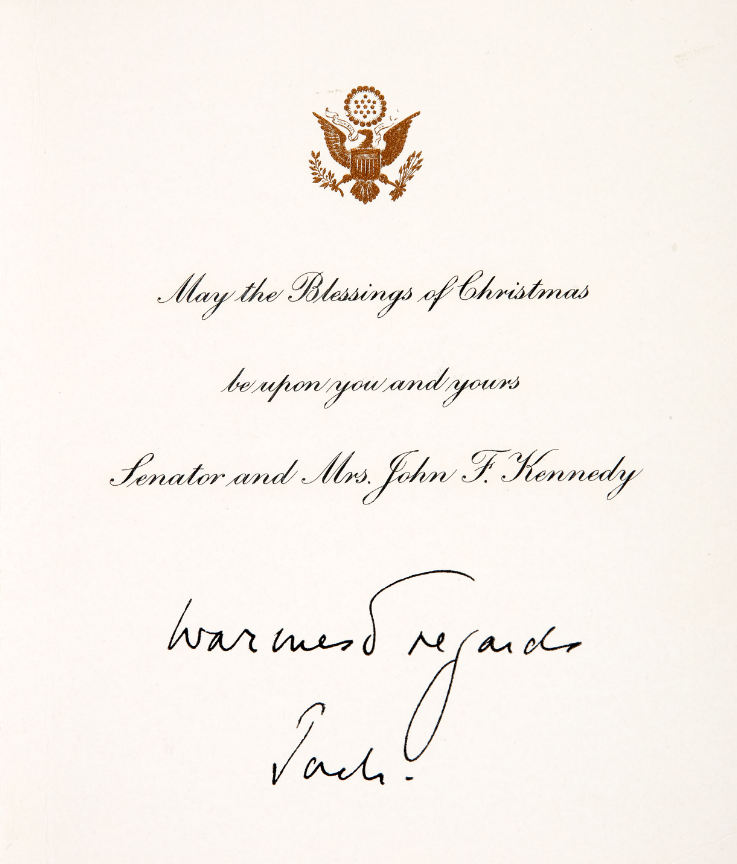 May the Blessings of Christmas
be upon you and yours
Senator and Mrs. John F. Kennedy
Warmest regards
Jack.